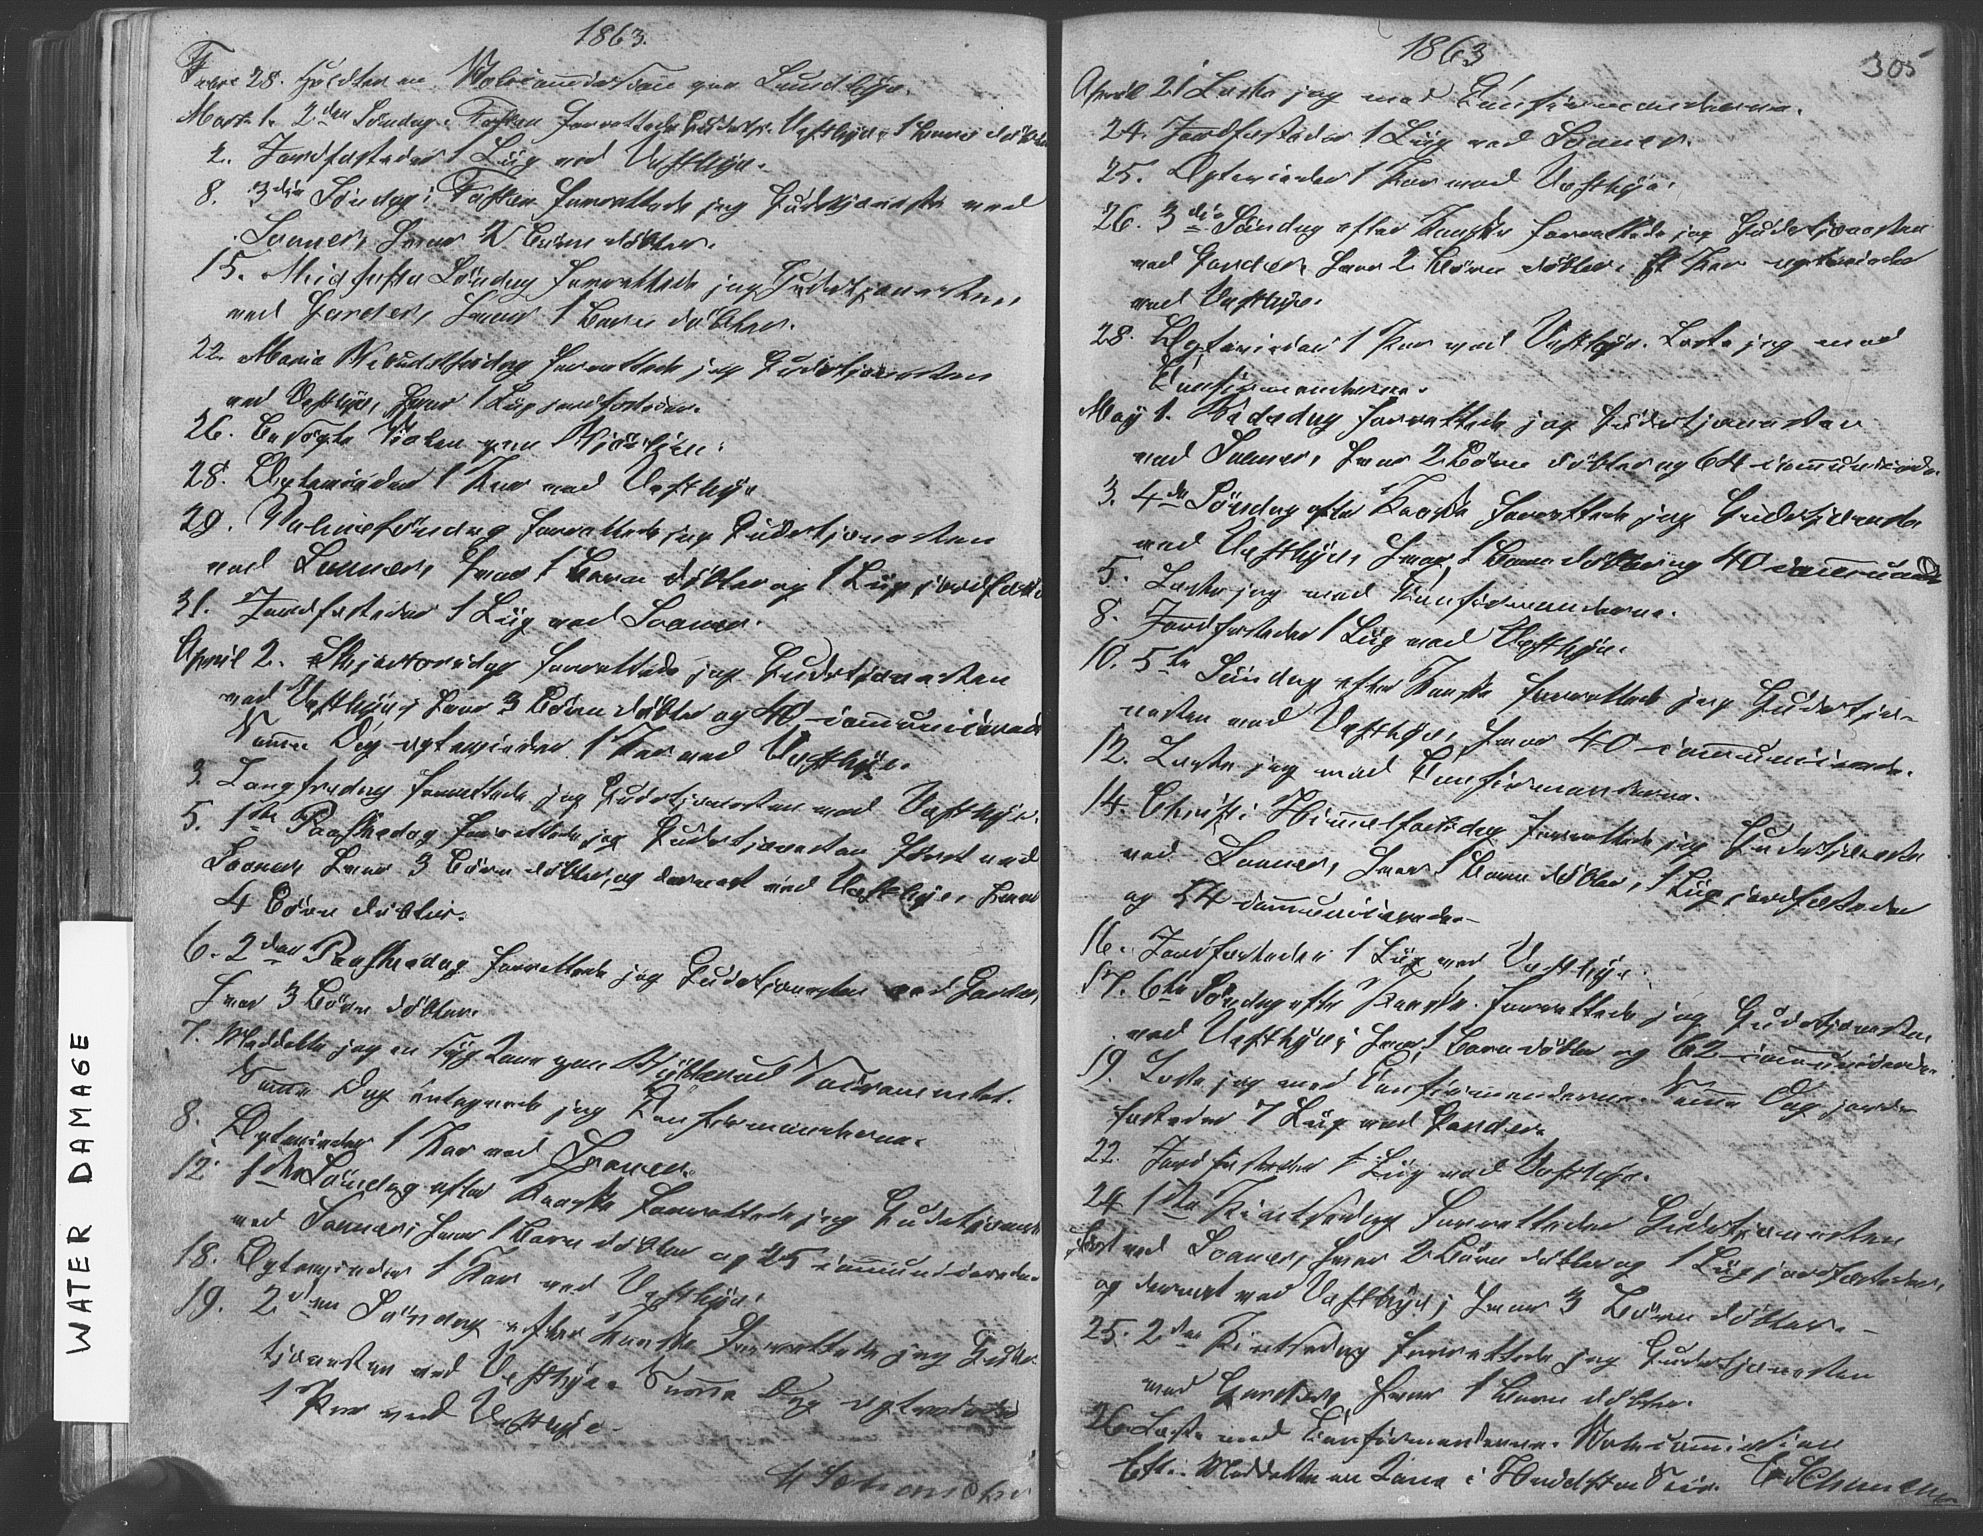 1863.
Febr: 28. holdtes en Valcommission paa Lundebye.
Marts 1. 2den Söndag i Fasten forrettede Gudstj. Vestbye, 1 Barn döbt
2. Jordfæstedes 1 Liig ved Vestbye.
8. 3die Söndag i Fasten forrettede jeg Gudstjeneste ved
Soner, hvor 2 Börn döbtes.
15. Midfaste Söndag forrettede jeg Gudstjenesten
ved Garder, hvor 1 Barn döbtes.
22. Maria Bebudelsesdag forrettede jeg Gudstjenesten
ved Vestbye, hvor 1 Liig jordfæstedes.
26. Besögte Skolen paa
28. Ægteviedes 1 Par ved Vestbye
29. Palmesöndag forrettede jeg Gudstjenesten
ved Soner, hvor 1 Barn döbtes og 1 Liig jordfæst
31. Jordfæstedes 1 Liig ved Soner.
April 2. Skjærtorsdag forrettede jeg Gudstjenesten
ved Vestbye, hvor 3 Börn döbtes og 40 communicerede
Samme Dag ægteviedes 1 Par ved Vestbye.
3 Langfredag forrettede jeg Gudstjenesten ved Vestbye.
5. 1ste Paaskedag forrettede jeg Gudstjenesten först ved
Soner, hvor 3 Börn döbtes, og dernæst ved Vestbye, hvor
4 Börn döbtes.
6. 2den Paaskedag forrettede jeg Gudstjenesten ved Garder,
hvor 3 Börn döbtes.
7. Meddeelte jeg en syg Kone paa Sacramentet.
Samme Dag antegnede jeg Confirmanderne.
8. Ægteviedes 1 Par ved Soner.
12. 1ste Söndag efter Paaske forrettede jeg Gudstjeneste
ved Soner, hvor 1 Barn döbtes og 25 communicerede
18. Ægteviedes 1 Par ved Vestbye.
19. 2den Söndag efter Paaske forrettede jeg Guds-
tjenesten ved Vestbye. Samme Dag ægteviedes
1 Par ved Vestbye.
1863
305
April 21 Læste jeg med Confirmanderne.
24. Jordfæstedes 1 Liig ved Soner.
25. Ægteviedes 1 Par ved Vestbye.
26. 3die Söndag efter Paaske forrettede jeg Gudstjenesten
ved Garder, hvor 2 Börn döbtes. Et Par ægteviedes
ved Vestbye.
28. Ægteviedes 1 Par ved Vestbye. Læste jeg med
Confirmanderne.
May 1. Bededag forrettede jeg Gudstjenesten
ved Soner, hvor 2 Börn döbtes og 64 communicerede.
3. 4de Söndag efter Paaske forrettede jeg Gudstjeneste
ved Vestbye, hvor 1 Barn döbtes og 40 communic
5. Læste jeg med Confirmanderne.
8. Jordfæstedes 1 Liig ved Vestbye.
10. 5te Söndag efter Paaske forrettede jeg Gudstje-
nesten ved Vestbye, hvor 40 communicerede.
12. Læste jeg med Confirmanderne.
14. Christi Himmelfartsdag forrettede jeg Gudstjeneste
ved Soner, hvor 1 Barn döbtes, 1 Liig jordfæstedes
og 54 communicerede.
16. Jordfæstedes 1 Liig ved Vestbye.
17. 6te Söndag efter Paaske forrettede jeg Gudstjenesten
ved Vestbye, hvor 1 Barn döbtes og 62 communicerede.
19. Læste jeg med Confirmanderne. Samme Dag jord-
fæstedes 1 Liig ved Garder.
22. Jordfæstedes 1 Liig ved Vestbye.
24. 1ste Pintsedag forrettedes Gudstjenesten
först ved Soner, hvor 2 Börn döbtes og 1 Liig jordfæstedes,
og dernæst ved Vestbye, hvor 3 Börn döbtes.
25. 2den Pintsedag forrettede jeg Gudstjenesten
ved Garder, hvor 1 Barn döbtes.
26. Læste med Confirmanderne. Valcommission
Eft. Meddeelte en Kone i
WATER DAMAGE